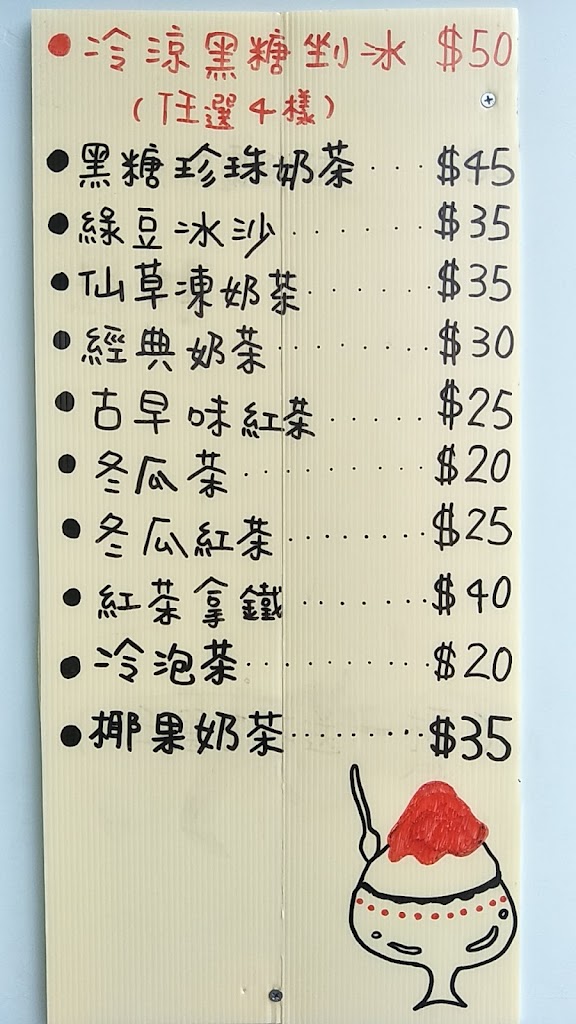 ● 冷涼黑糖剉冰 $50
(任選4樣)
● 黑糖珍珠奶茶 ···· $45
● 綠豆冰沙 ······· $35
● 仙草凍奶茶 ······· $35
● 經典奶茶 ········ $30
● 古早味紅茶 ······ $25
● 冬瓜茶 ········· $20
● 冬瓜紅茶 ········ $25
● 紅茶拿鐵 ······· $40
● 冷泡茶 ·········· $20
● 椰果奶茶 ········ $35